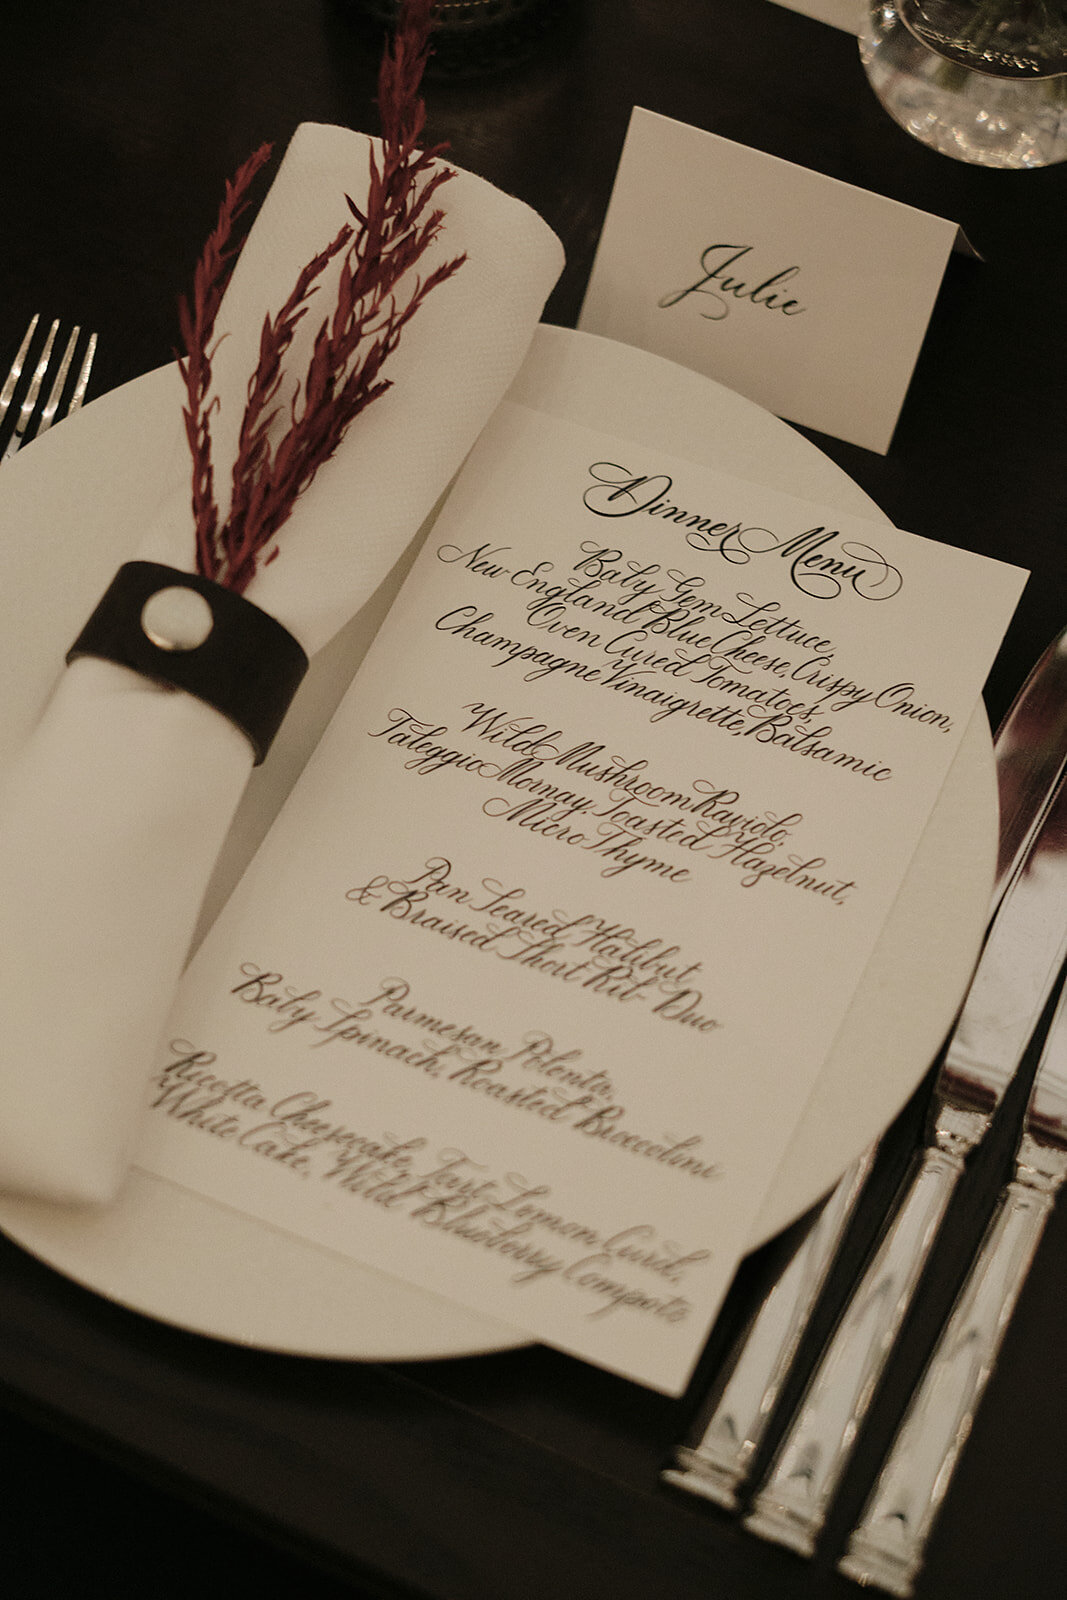 Julie
Dinner Menu
Baby Gem Lettuce,
New England Blue Cheese, Crispy Onion,
Oven Cured Tomatoes,
Champagne Vinaigrette, Balsamic
Wild Mushroom Raviolo,
Taleggio Mornay, Toasted Hazelnut,
Micro Thyme
Pan Seared Halibut
& Braised Short Rib Duo
Parmesan Polenta,
Baby Spinach, Roasted Broccolini
Ricotta Cheesecake, Tart Lemon Curd,
White Cake, Wild Blueberry Compote